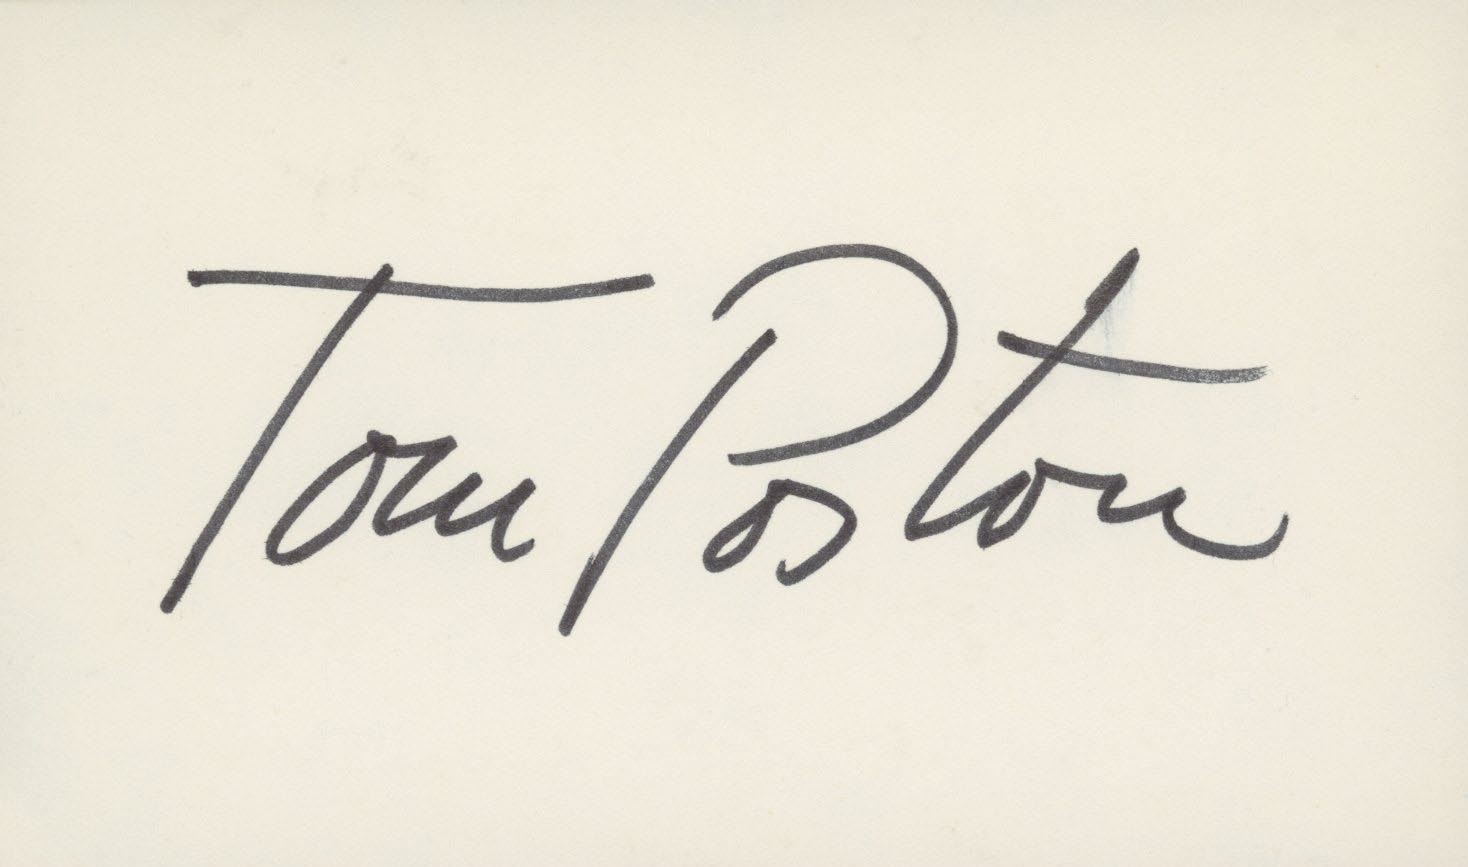 Tom Poston